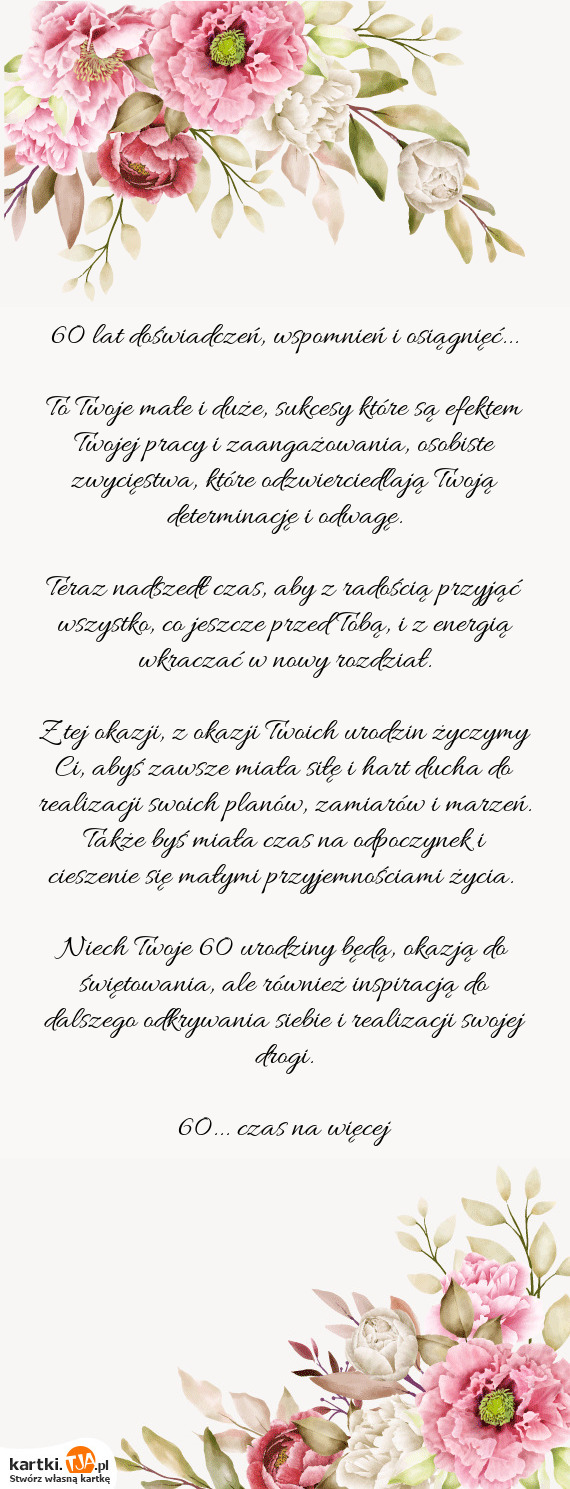 60 lat doświadczeń, wspomnień i osiągnięć...
To Twoje małe i duże, sukcesy które są efektem
Twojej pracy i zaangażowania, osobiste
zwycięstwa, które odzwierciedlają Twoją
determinację i odwagę.
Teraz nadszedł czas, aby z radością przyjąć
wszystko, co jeszcze przed Tobą, i z energią
wkraczać w nowy rozdział.
Z tej okazji, z okazji Twoich urodzin życzymy
Ci, abyś zawsze miała siłę i hart ducha do
realizacji swoich planów, zamiarów i marzeń.
Także byś miała czas na odpoczynek i
cieszenie się małymi przyjemnościami życia.
Niech Twoje 60 urodziny będą, okazją do
świętowania, ale również inspiracją do
dalszego odkrywania siebie i realizacji swojej
drogi.
60... czas na więcej
kartki.TJA.pl
Stwórz własną kartkę